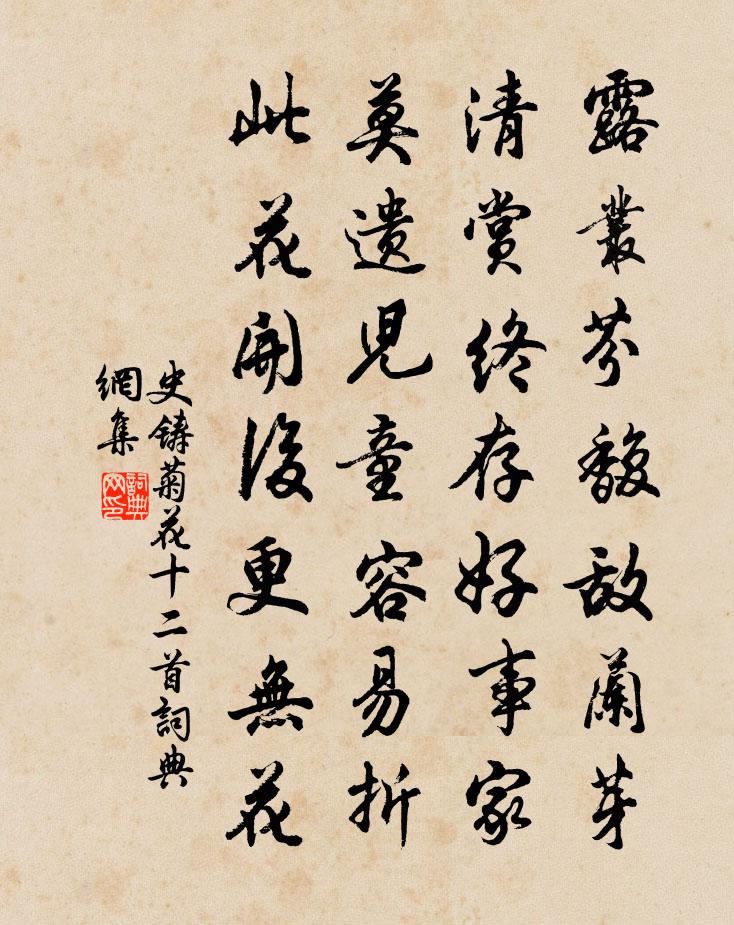 露叢芬馥敵蘭芽
清賞終存好事家
莫遺兒童容易折
此花開後更無花
史鑄菊花十二首詞典
網集
詞典
网印